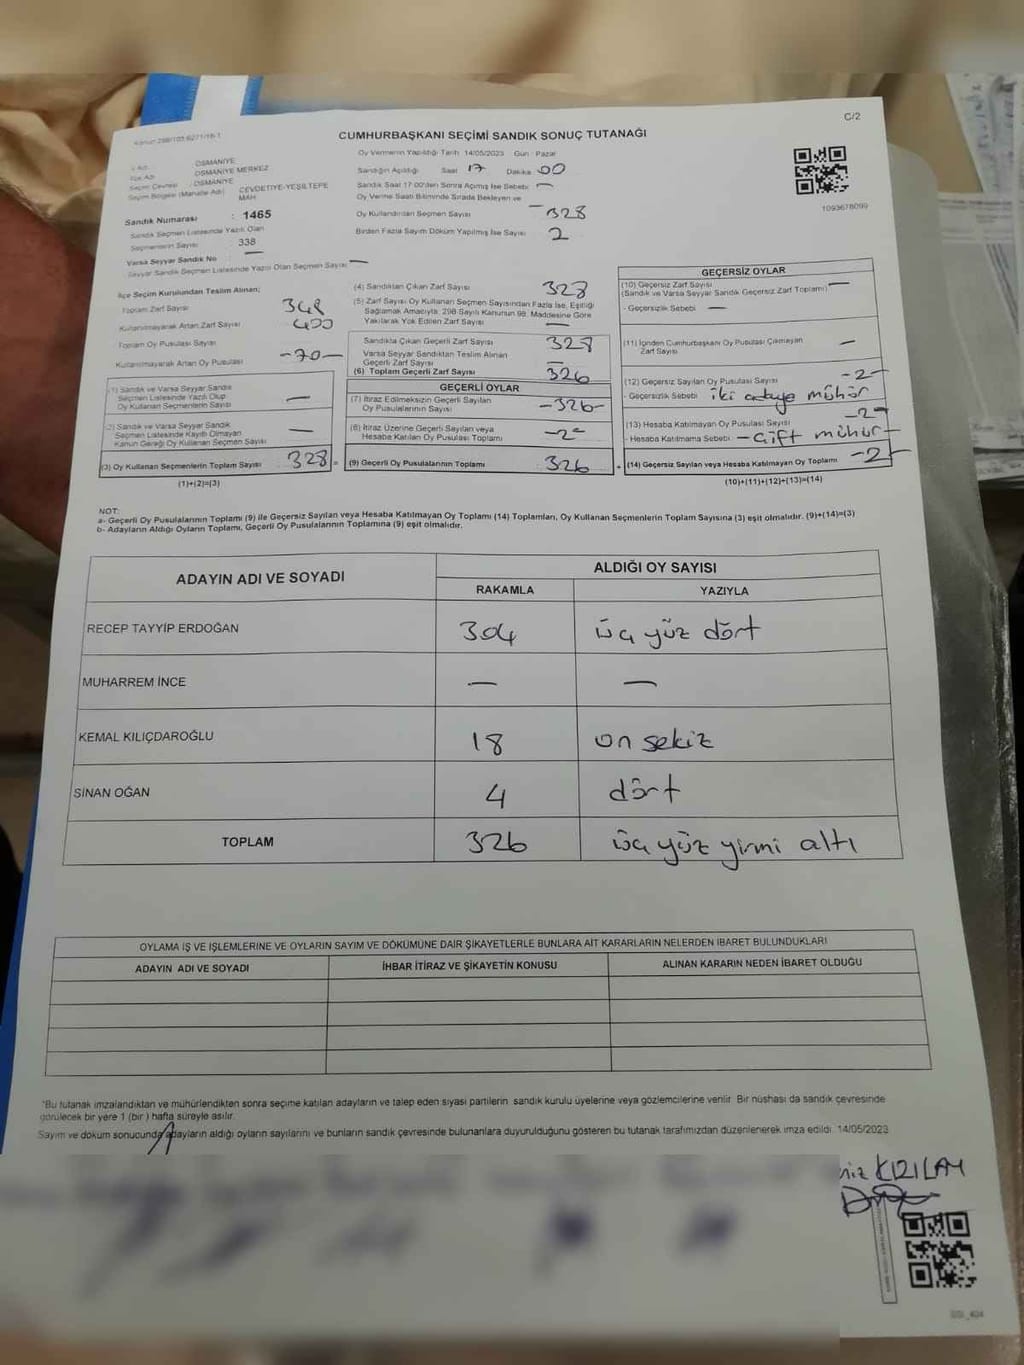 C/2
Kanun 298/105 6271/18-1
CUMHURBAŞKANI SEÇİMİ SANDIK SONUÇ TUTANAĞI
OSMANİYE
OSMANİYE MERKEZ
Seçim Çevresi : OSMANİYE
Seçim Bölgesi (Mahalle Adı) CEVDETİYE-YEŞİLTEPE MAH
Sandık Numarası : 1465
Sandık Seçmen Listesinde Yazılı Olan
Seçmenlerin Sayısı 338
Varsa Seyyar Sandık No —
Seyyar Sandık Seçmen Listesinde Yazılı Olan Seçmen Sayısı —
Oy Vermenin Yapıldığı Tarih 14/05/2023 Gün : Pazar
Sandığın Açıldığı Saat 17 Dakika 00
Sandık Saat 17 00'den Sonra Açılmış İse Sebebi —
Oy Verme Saati Bitiminde Sırada Bekleyen ve
Oy Kullandırılan Seçmen Sayısı 328
Birden Fazla Sayım Döküm Yapılmış İse Sayısı 2
1093678099
İlçe Seçim Kurulundan Teslim Alınan;
Toplam Zarf Sayısı 348
Kullanılmayarak Artan Zarf Sayısı
Toplam Oy Pusulası Sayısı
Kullanılmayarak Artan Oy Pusulası -70-
(1) Sandık ve Varsa Seyyar Sandık
Seçmen Listesinde Yazılı Olup
Oy Kullanan Seçmenlerin Sayısı —
(2) Sandık ve Varsa Seyyar Sandık
Seçmen Listesinde Kayıtlı Olmayan
Kanun Gereği Oy Kullanan Seçmen Sayısı —
(3) Oy Kullanan Seçmenlerin Toplam Sayısı 328 =
(1)+(2)=(3)
(4) Sandıktan Çıkan Zarf Sayısı 328
(5) Zarf Sayısı Oy Kullanan Seçmen Sayısından Fazla İse, Eşitliği
Sağlamak Amacıyla; 298 Sayılı Kanunun 98. Maddesine Göre
Yakılarak Yok Edilen Zarf Sayısı —
Sandıkta Çıkan Geçerli Zarf Sayısı 328
Varsa Seyyar Sandıktan Teslim Alınan
Geçerli Zarf Sayısı —
(6) Toplam Geçerli Zarf Sayısı 326
GEÇERLİ OYLAR
(7) İtiraz Edilmeksizin Geçerli Sayılan
Oy Pusulalarının Sayısı -326-
(8) İtiraz Üzerine Geçerli Sayılan veya
Hesaba Katılan Oy Pusulası Toplamı -2-
(9) Geçerli Oy Pusulalarının Toplamı 326 +
GEÇERSİZ OYLAR
(10) Geçersiz Zarf Sayısı
(Sandık ve Varsa Seyyar Sandık Geçersiz Zarf Toplamı) —
- Geçersizlik Sebebi —
(11) İçinden Cumhurbaşkanı Oy Pusulası Çıkmayan
Zarf Sayısı —
(12) Geçersiz Sayılan Oy Pusulası Sayısı -2-
- Geçersizlik Sebebi iki adaya mühür
(13) Hesaba Katılmayan Oy Pusulası Sayısı -2-
- Hesaba Katılmama Sebebi - Çift mühür -
(14) Geçersiz Sayılan veya Hesaba Katılmayan Oy Toplamı -2-
(10)+(11)+(12)+(13)=(14)
NOT:
a- Geçerli Oy Pusulalarının Toplamı (9) ile Geçersiz Sayılan veya Hesaba Katılmayan Oy Toplamı (14) Toplamları, Oy Kullanan Seçmenlerin Toplam Sayısına (3) eşit olmalıdır. (9)+(14)=(3)
b- Adayların Aldığı Oyların Toplamı, Geçerli Oy Pusulalarının Toplamına (9) eşit olmalıdır.
ADAYIN ADI VE SOYADI
ALDIĞI OY SAYISI
RAKAMLA YAZIYLA
RECEP TAYYİP ERDOĞAN 304 üç yüz dört
MUHARREM İNCE — —
KEMAL KILIÇDAROĞLU 18 on sekiz
SİNAN OĞAN 4 dört
TOPLAM 326 üç yüz yirmi altı
OYLAMA İŞ VE İŞLEMLERİNE VE OYLARIN SAYIM VE DÖKÜMÜNE DAİR ŞİKAYETLERLE BUNLARA AİT KARARLARIN NELERDEN İBARET BULUNDUKLARI
ADAYIN ADI VE SOYADI İHBAR İTİRAZ VE ŞİKAYETİN KONUSU ALINAN KARARIN NEDEN İBARET OLDUĞU
*Bu tutanak imzalandıktan ve mühürlendikten sonra seçime katılan adayların ve talep eden siyasi partilerin sandık kurulu üyelerine veya gözlemcilerine verilir. Bir nüshası da sandık çevresinde
görülecek bir yere 1 (bir) hafta süreyle asılır.
Sayım ve döküm sonucunda adayların aldığı oyların sayılarını ve bunların sandık çevresinde bulunanlara duyurulduğunu gösteren bu tutanak tarafımızdan düzenlenerek imza edildi. 14/05/2023
niz KIZILAY